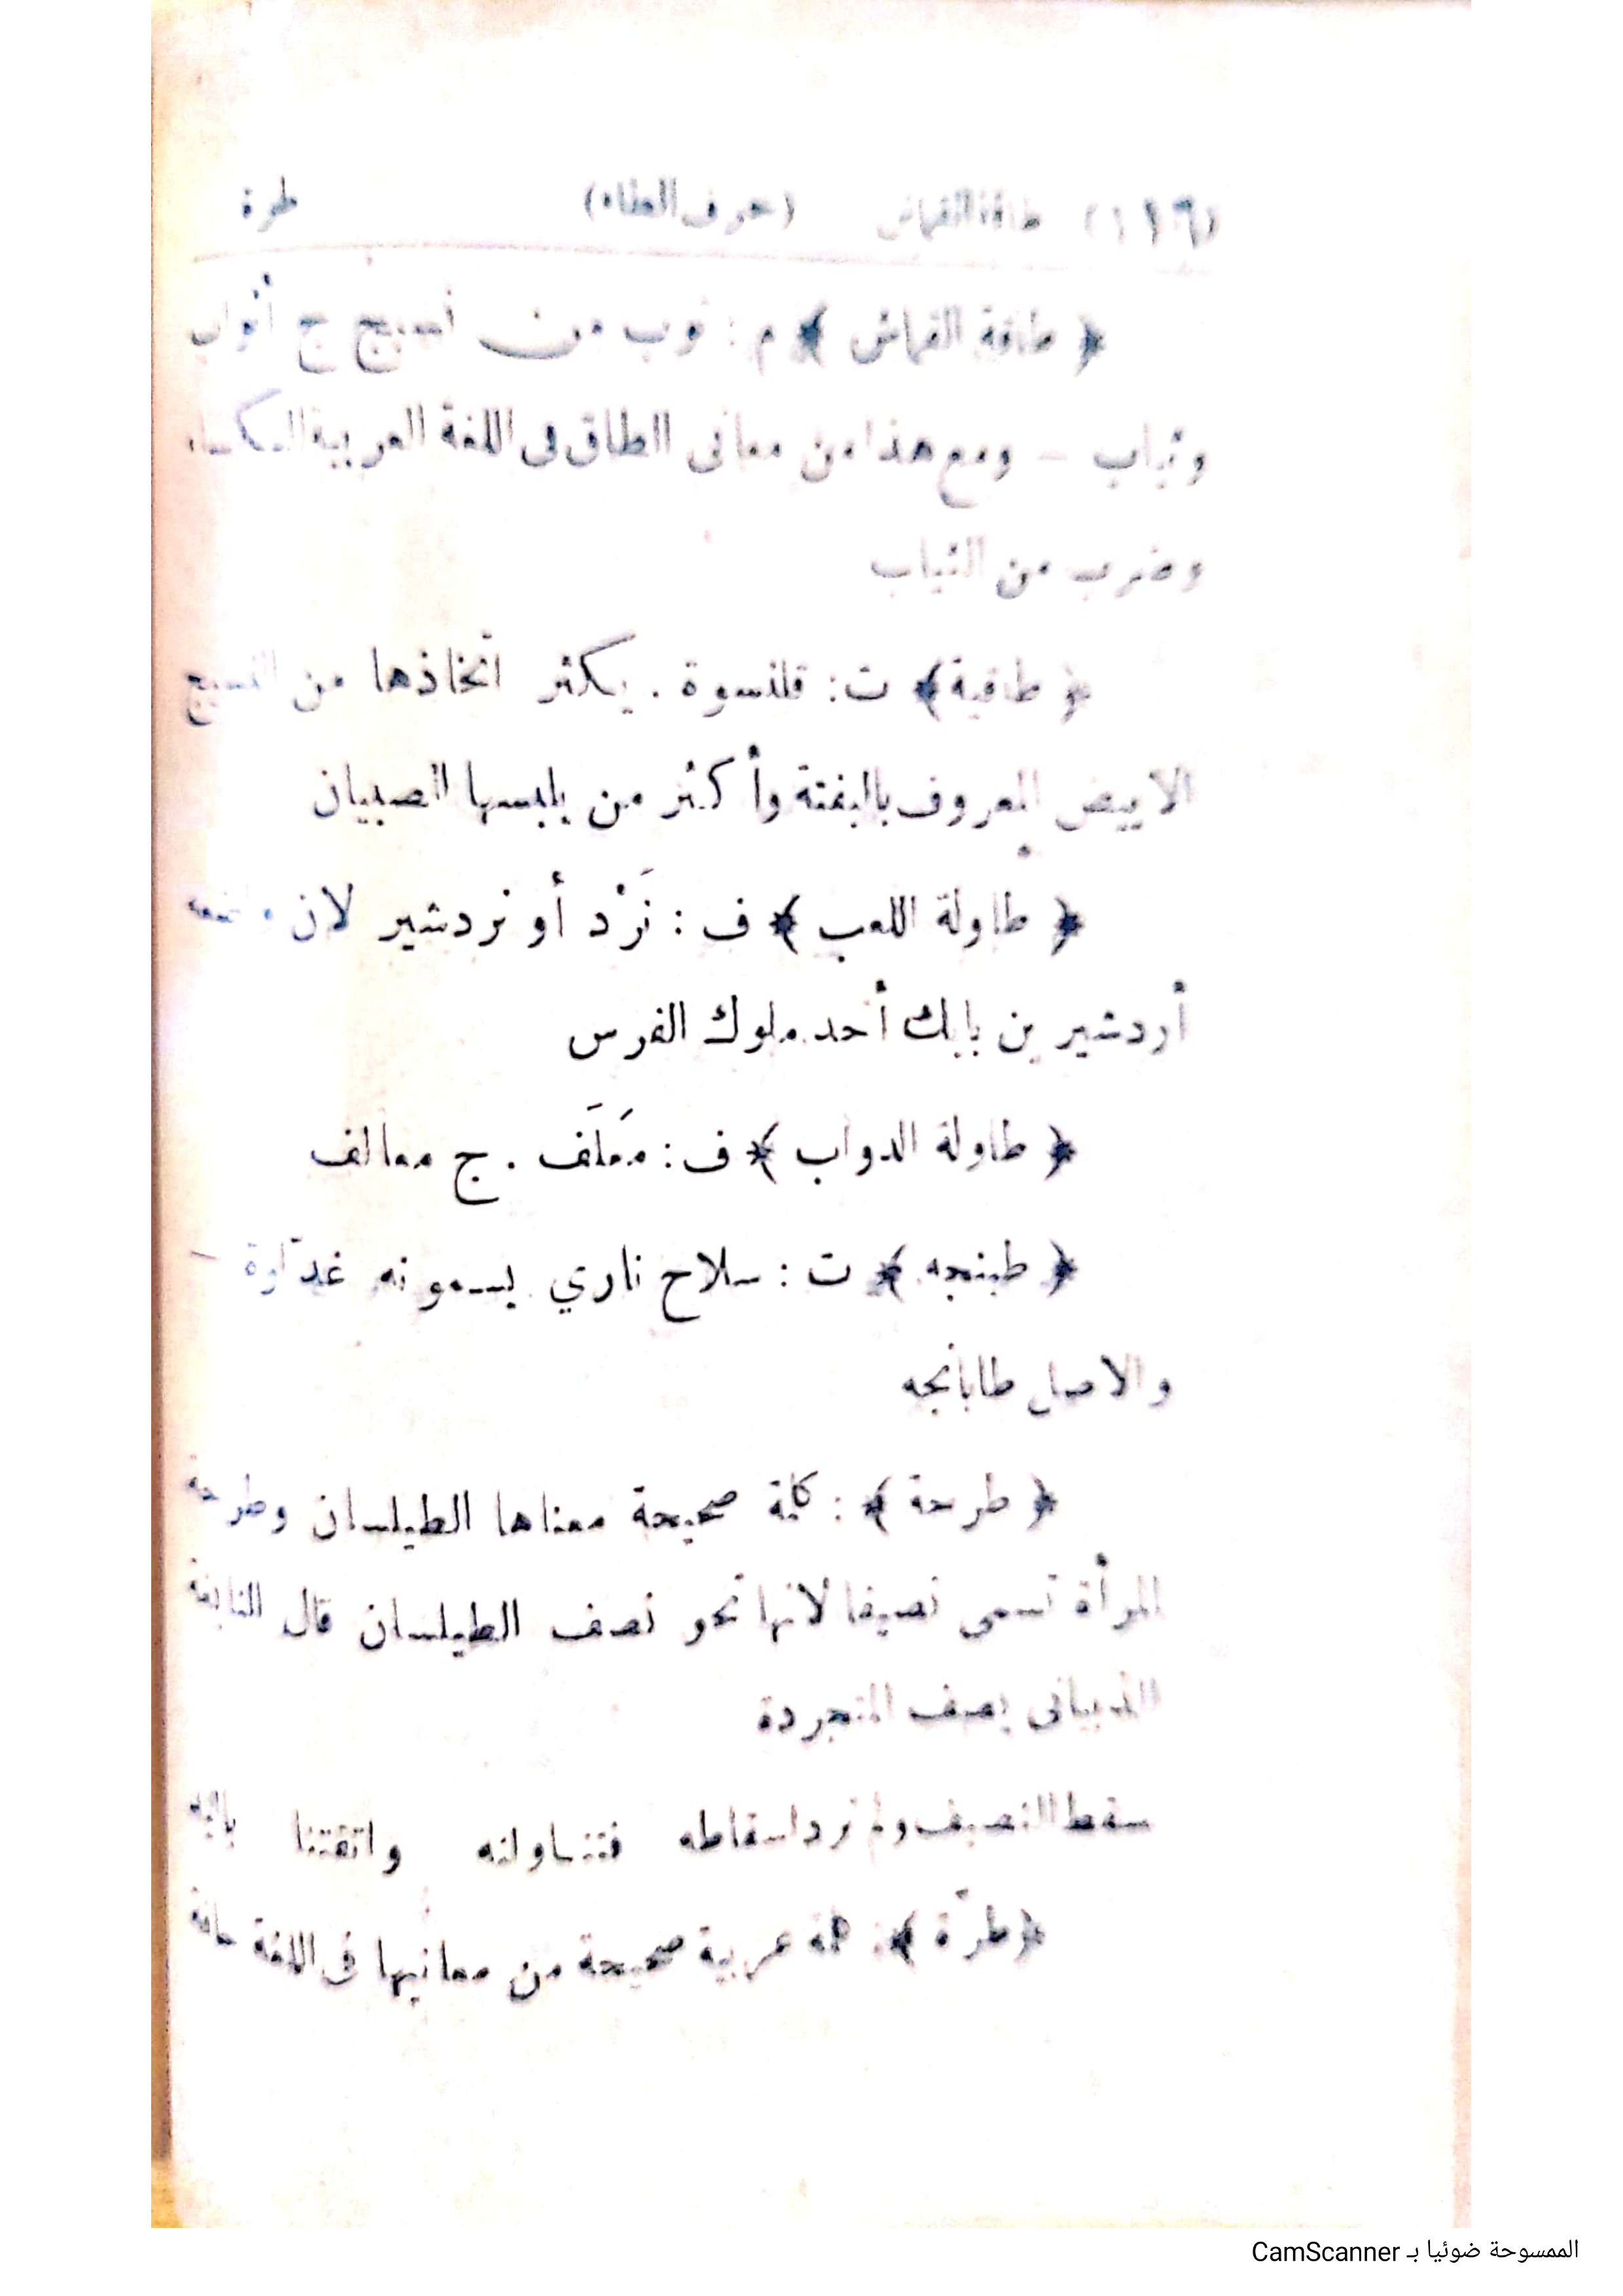 (١١٦) طاقة القماش (حرف الطاء) طرة
﴿ طاقة القماش ﴾ م : ثوب من نسيج ج أثواب
وثياب – ومع هذا من معانى الطاق فى اللغة العربية الكساء
وضرب من الثياب
﴿ طاقية ﴾ ت : قلنسوة . يكثر اتخاذها من النسيج
الابيض المعروف بالبفتة وأكثر من يلبسها الصبيان
﴿ طاولة اللعب ﴾ ف : نَرْد أو نردشير لان واضعه
أردشير بن بابك أحد ملوك الفرس
﴿ طاولة الدواب ﴾ ف : مَعلَف . ج معالف
﴿ طبنجه ﴾ ت : سلاح ناري يسمونه غدّارة –
والاصل طابانجه
﴿ طرحة ﴾ : كلمة صحيحة معناها الطيلسان وطرحة
المرأة تسمى نصيفا لانها نحو نصف الطيلسان قال النابغة
الذبيانى يصف المتجردة
سقط النصيف ولم ترد اسقاطه فتناولته واتقتنا باليد
﴿ طرّة ﴾ : كلمة عربية صحيحة من معانيها فى اللغة حافة
الممسوحة ضوئيا بـ CamScanner